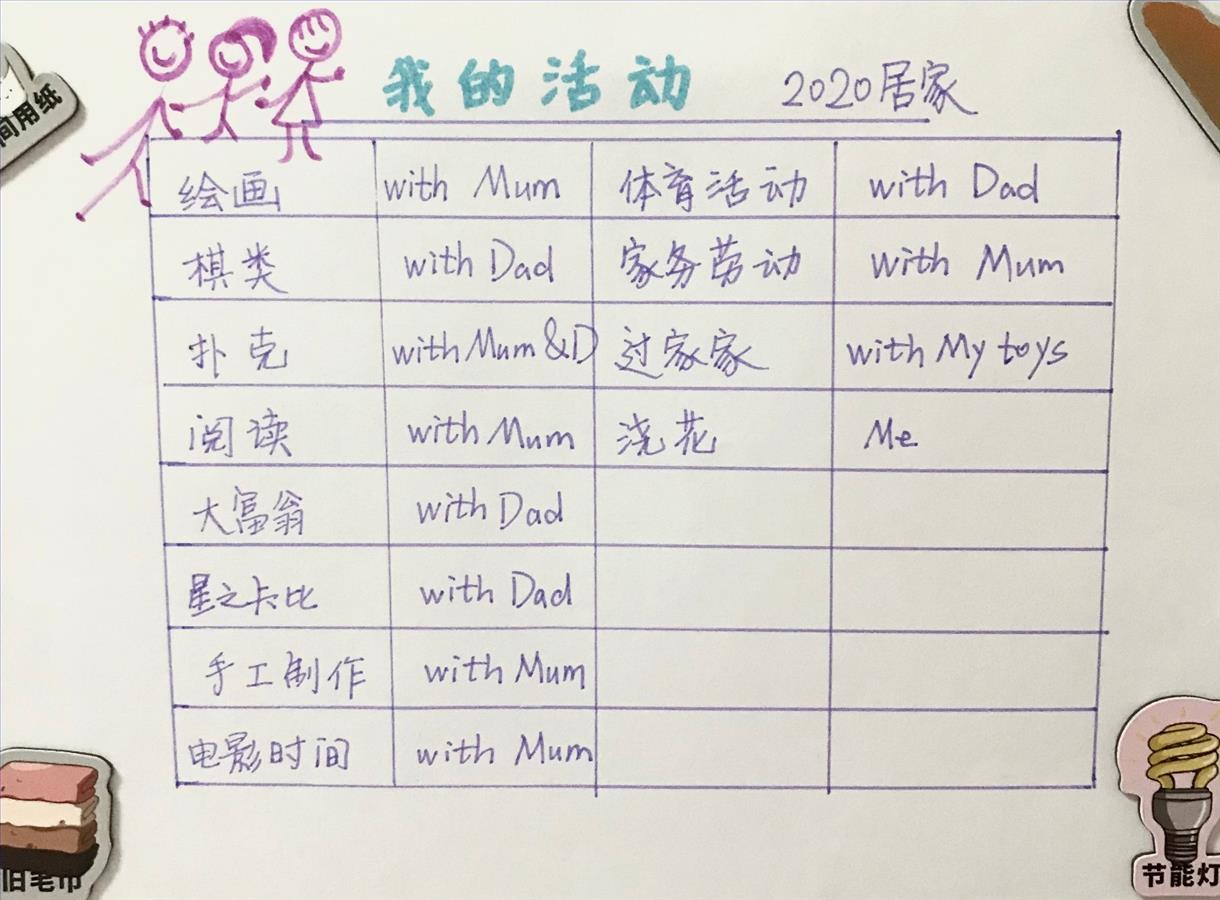 我的活动 2020居家
绘画 with Mum 体育活动 with Dad
棋类 with Dad 家务劳动 with Mum
扑克 with Mum &D 过家家 with My toys
阅读 with Mum 浇花 Me
大富翁 with Dad
星之卡比 with Dad
手工制作 with Mum
电影时间 with Mum
间用纸
旧笔巾
节能灯